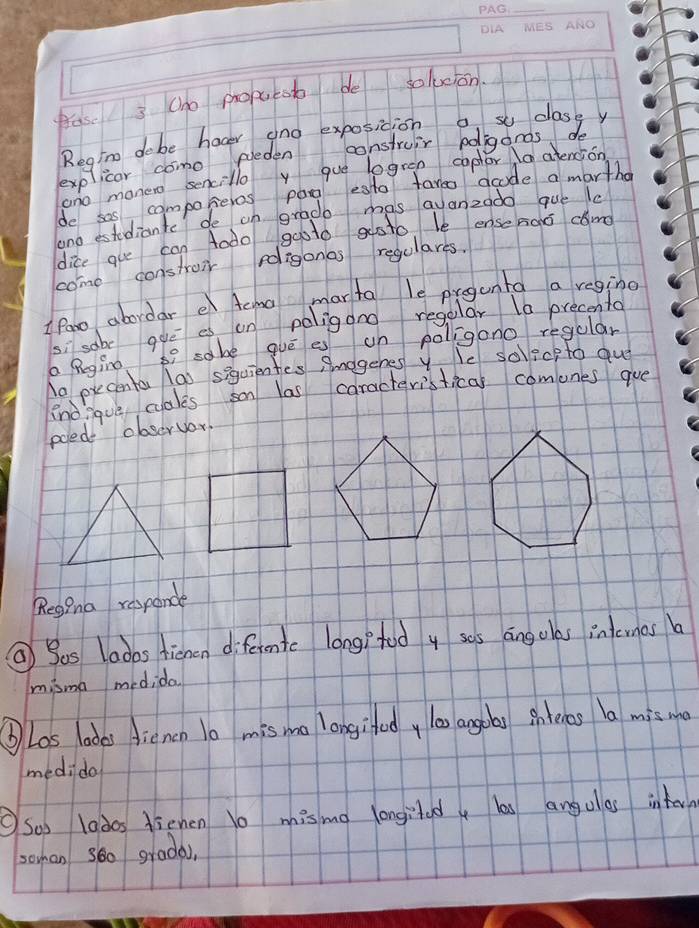 PAG.
DIA MES AÑO
Fase 3 Una propuesta de solución.
Regina debe hacer una exposición a su clase y
explicar como pueden construir poligonos de
una manera sencilla y que logren captar la atención
de sus compañeras para esta tarea acude a martha
una estudiante de un grado mas avanzado que le
dice que con todo gusto gusto le enseñará cómo
como construir poligonos regulares.
1 Para abordar el tema marta le pregunta a regina
si sabe que es un poligono regular la precenta
a Regina si sabe qué es un poligono regular
la precenta las siguientes imagenes y le solicita que
indique cuáles son las caracteristicas comunes que
puede observar.
Regina responde
a) Sus lados tienen diferente longitud y sus ángulos internos la
misma medida
b) Los lados tienen la misma longitud y los angulos interos la misma
medida
c) Sus lados tienen la misma longitud y los angulos intern
suman 360 grados,